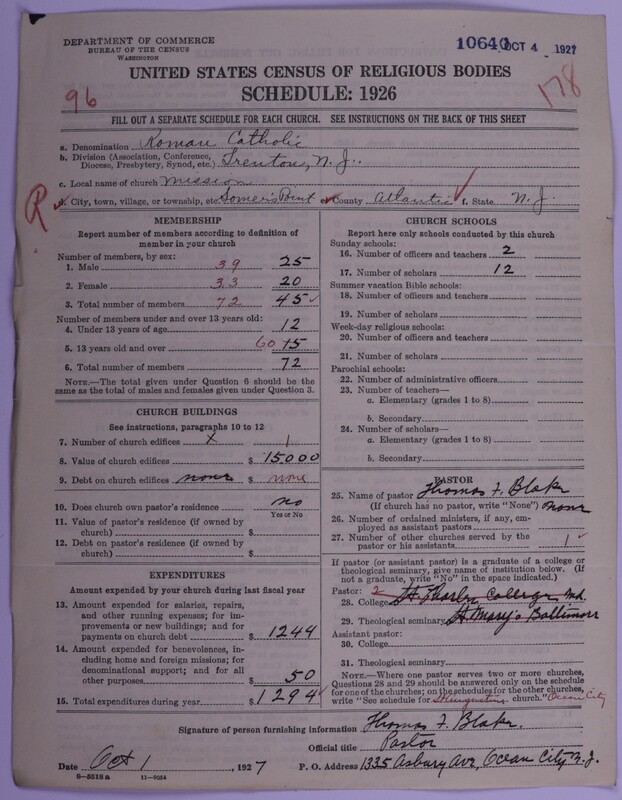 DEPARTMENT OF COMMERCE
BUREAU OF THE CENSUS
WASHINGTON
10640 OCT 4 1927
UNITED STATES CENSUS OF RELIGIOUS BODIES
SCHEDULE: 1926
96
178
FILL OUT A SEPARATE SCHEDULE FOR EACH CHURCH. SEE INSTRUCTIONS ON THE BACK OF THIS SHEET
a. Denomination Roman Catholic
b. Division (Association, Conference, Diocese, Presbytery, Synod, etc.) Trenton, N. J.
c. Local name of church Mission
R
d. City, town, village, or township, etc. Somers Point e. County Atlantic f. State N. J.
MEMBERSHIP
Report number of members according to definition of member in your church
Number of members, by sex:
1. Male 39 25
2. Female 33 20
3. Total number of members 72 45
Number of members under and over 13 years old:
4. Under 13 years of age 12
5. 13 years old and over 60 15
6. Total number of members 72
NOTE.—The total given under Question 6 should be the same as the total of males and females given under Question 3.
CHURCH BUILDINGS
See instructions, paragraphs 10 to 12
7. Number of church edifices x 1
8. Value of church edifices $ 15000
9. Debt on church edifices none $ none
10. Does church own pastor's residence? no
Yes or No
11. Value of pastor's residence (if owned by church) $
12. Debt on pastor's residence (if owned by church) $
EXPENDITURES
Amount expended by your church during last fiscal year
13. Amount expended for salaries, repairs, and other running expenses; for improvements or new buildings; and for payments on church debt $ 1244
14. Amount expended for benevolences, including home and foreign missions; for denominational support; and for all other purposes $ 50
15. Total expenditures during year $ 1294
CHURCH SCHOOLS
Report here only schools conducted by this church
Sunday schools:
16. Number of officers and teachers 2
17. Number of scholars 12
Summer vacation Bible schools:
18. Number of officers and teachers
19. Number of scholars
Week-day religious schools:
20. Number of officers and teachers
21. Number of scholars
Parochial schools:
22. Number of administrative officers
23. Number of teachers—
a. Elementary (grades 1 to 8)
b. Secondary
24. Number of scholars—
a. Elementary (grades 1 to 8)
b. Secondary
PASTOR
25. Name of pastor Thomas F. Blake
(If church has no pastor, write "None")
26. Number of ordained ministers, if any, employed as assistant pastors none
27. Number of other churches served by the pastor or his assistants 1
If pastor (or assistant pastor) is a graduate of a college or theological seminary, give name of institution below. (If not a graduate, write "No" in the space indicated.)
Pastor: 2
28. College St Charles College, Md.
29. Theological seminary St Mary's Baltimore
Assistant pastor:
30. College
31. Theological seminary
NOTE.—Where one pastor serves two or more churches, Questions 28 and 29 should be answered only on the schedule for one of the churches; on the schedules for the other churches, write "See schedule for church." Ocean City
Signature of person furnishing information Thomas F. Blake.
Official title Pastor
Date Oct 1, 1927 P. O. Address 1335 Asbury Ave, Ocean City N. J.
8—5518 a 11—9034